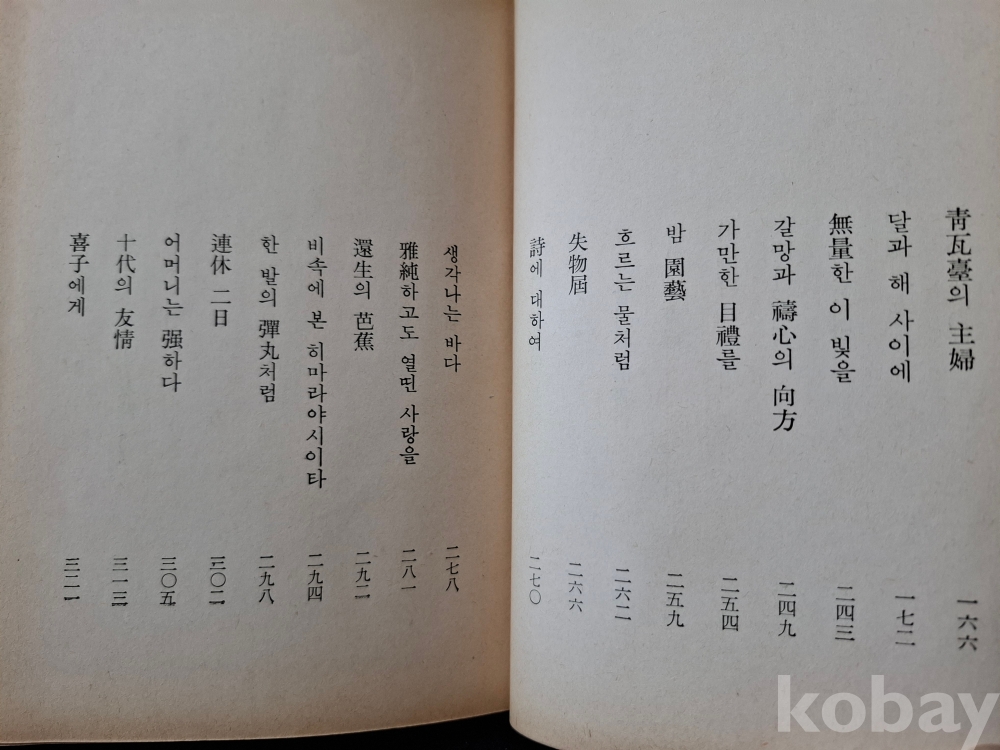 靑瓦臺의 主婦 一六六
달과 해 사이에 一七二
無量한 이 빛을 二四三
갈망과 禱心의 向方 二四九
가만한 目禮를 二五四
밤 園藝 二五九
흐르는 물처럼 二六二
失物屆 二六六
詩에 대하여 二七〇
생각나는 바다 二七八
雅純하고도 열띤 사랑을 二八一
還生의 芭蕉 二九二
비속에 본 히마라야시이타 二九四
한 발의 彈丸처럼 二九八
連休 二日 三〇二
어머니는 强하다 三〇五
十代의 友情 三一三
喜子에게 三二一
kobay